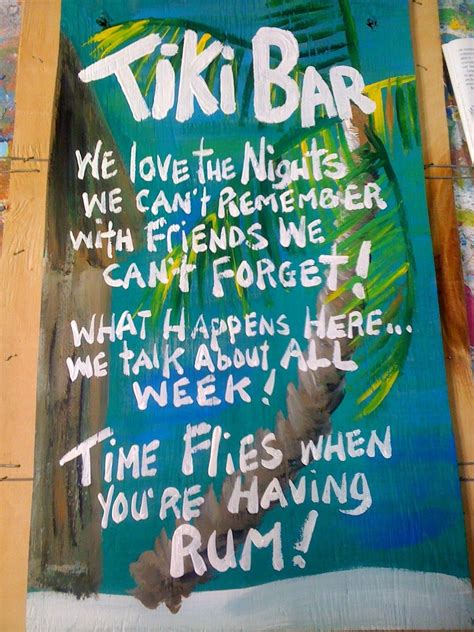 TiKi BAR
WE lOVE tHE NigHts
WE CAN't REMEMBER
with FRiENDS WE
CAN't FORGET!
WHAT HAPPENS HERE...
WE tAlK AbOUt ALL
WEEK!
TiME FliES WHEN
YOU'RE HAViNG
RUM!